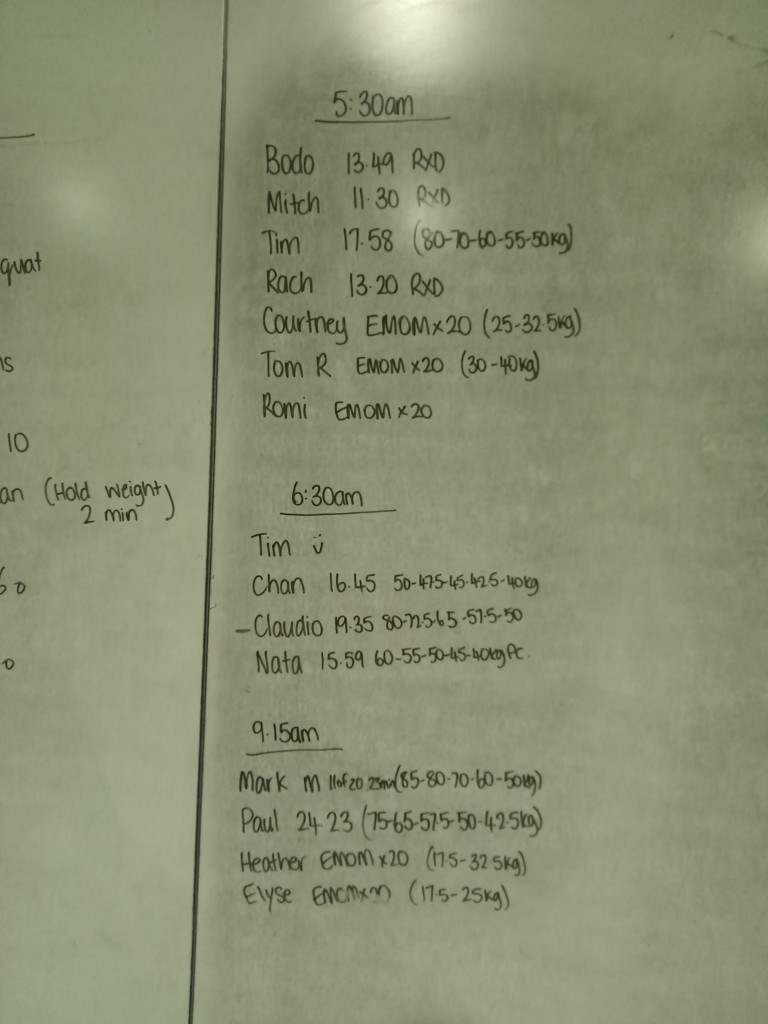 quat
10
(Hold weight)
2 min
5:30am
Bodo 13.49 RXD
Mitch 11.30 RXD
Tim 17.58 (80-70-60-55-50kg)
Rach 13.20 RXD
Courtney EMOM x 20 (25-32.5kg)
Tom R EMOM x 20 (30-40kg)
Romi EMOM x 20
6:30am
Tim
Chan 16.45 50-47.5-45-42.5-40kg
-Claudio 19.35 80-72.5-65-57.5-50
Nata 15.59 60-55-50-45-40kg PC.
9.15am
Mark M 11 of 20 23min (85-80-70-60-50kg)
Paul 24.23 (75-65-57.5-50-42.5kg)
Heather EMOM x 20 (17.5-32.5kg)
Elyse (17.5-25kg)